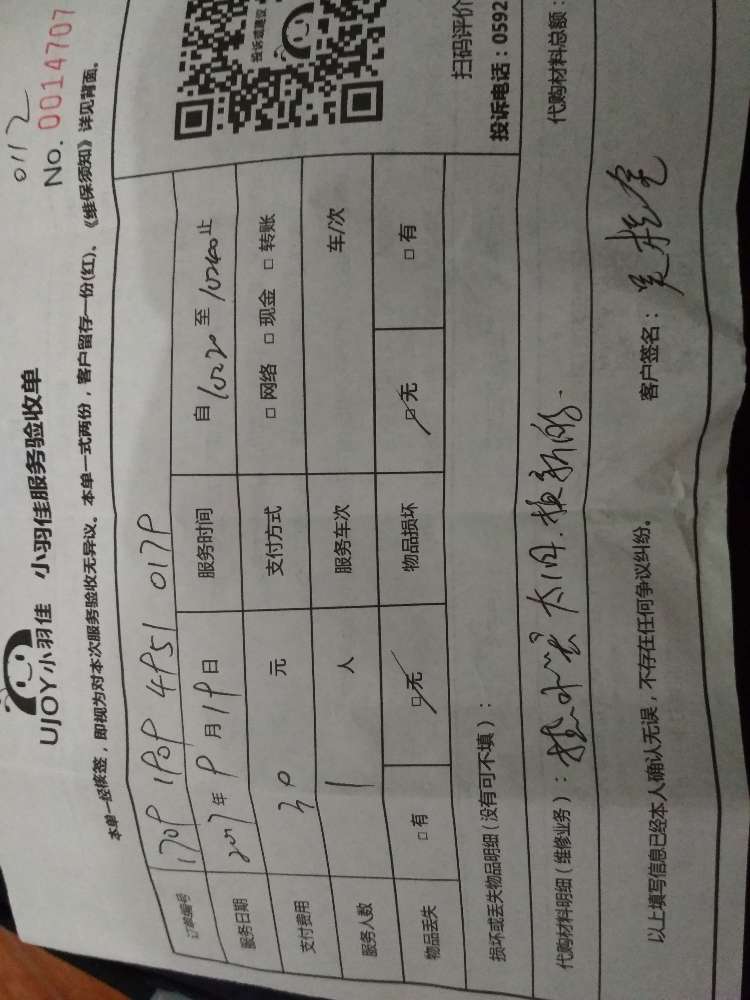 0112
UJOY小羽佳 小羽佳服务验收单
No. 0014707
本单一经核签，即视为对本次服务验收无异议。本单一式两份，客户留存一份(红)。《维保须知》详见背面。
订单编号 1709 1909 4951 0179
服务日期 2017年9月19日 服务时间 自 至 止
支付费用 元 支付方式 □网络 □现金 □转账
服务人数 1 人 服务车次 车/次
物品丢失 □有 □无 物品损坏 □无 □有
投诉或建议
扫码评价
投诉电话：0592
损坏或丢失物品明细（没有可不填）：
代购材料明细（维修业务）： 太旧.换新的.
代购材料总额：
以上填写信息已经本人确认无误，不存在任何争议纠纷。
客户签名：